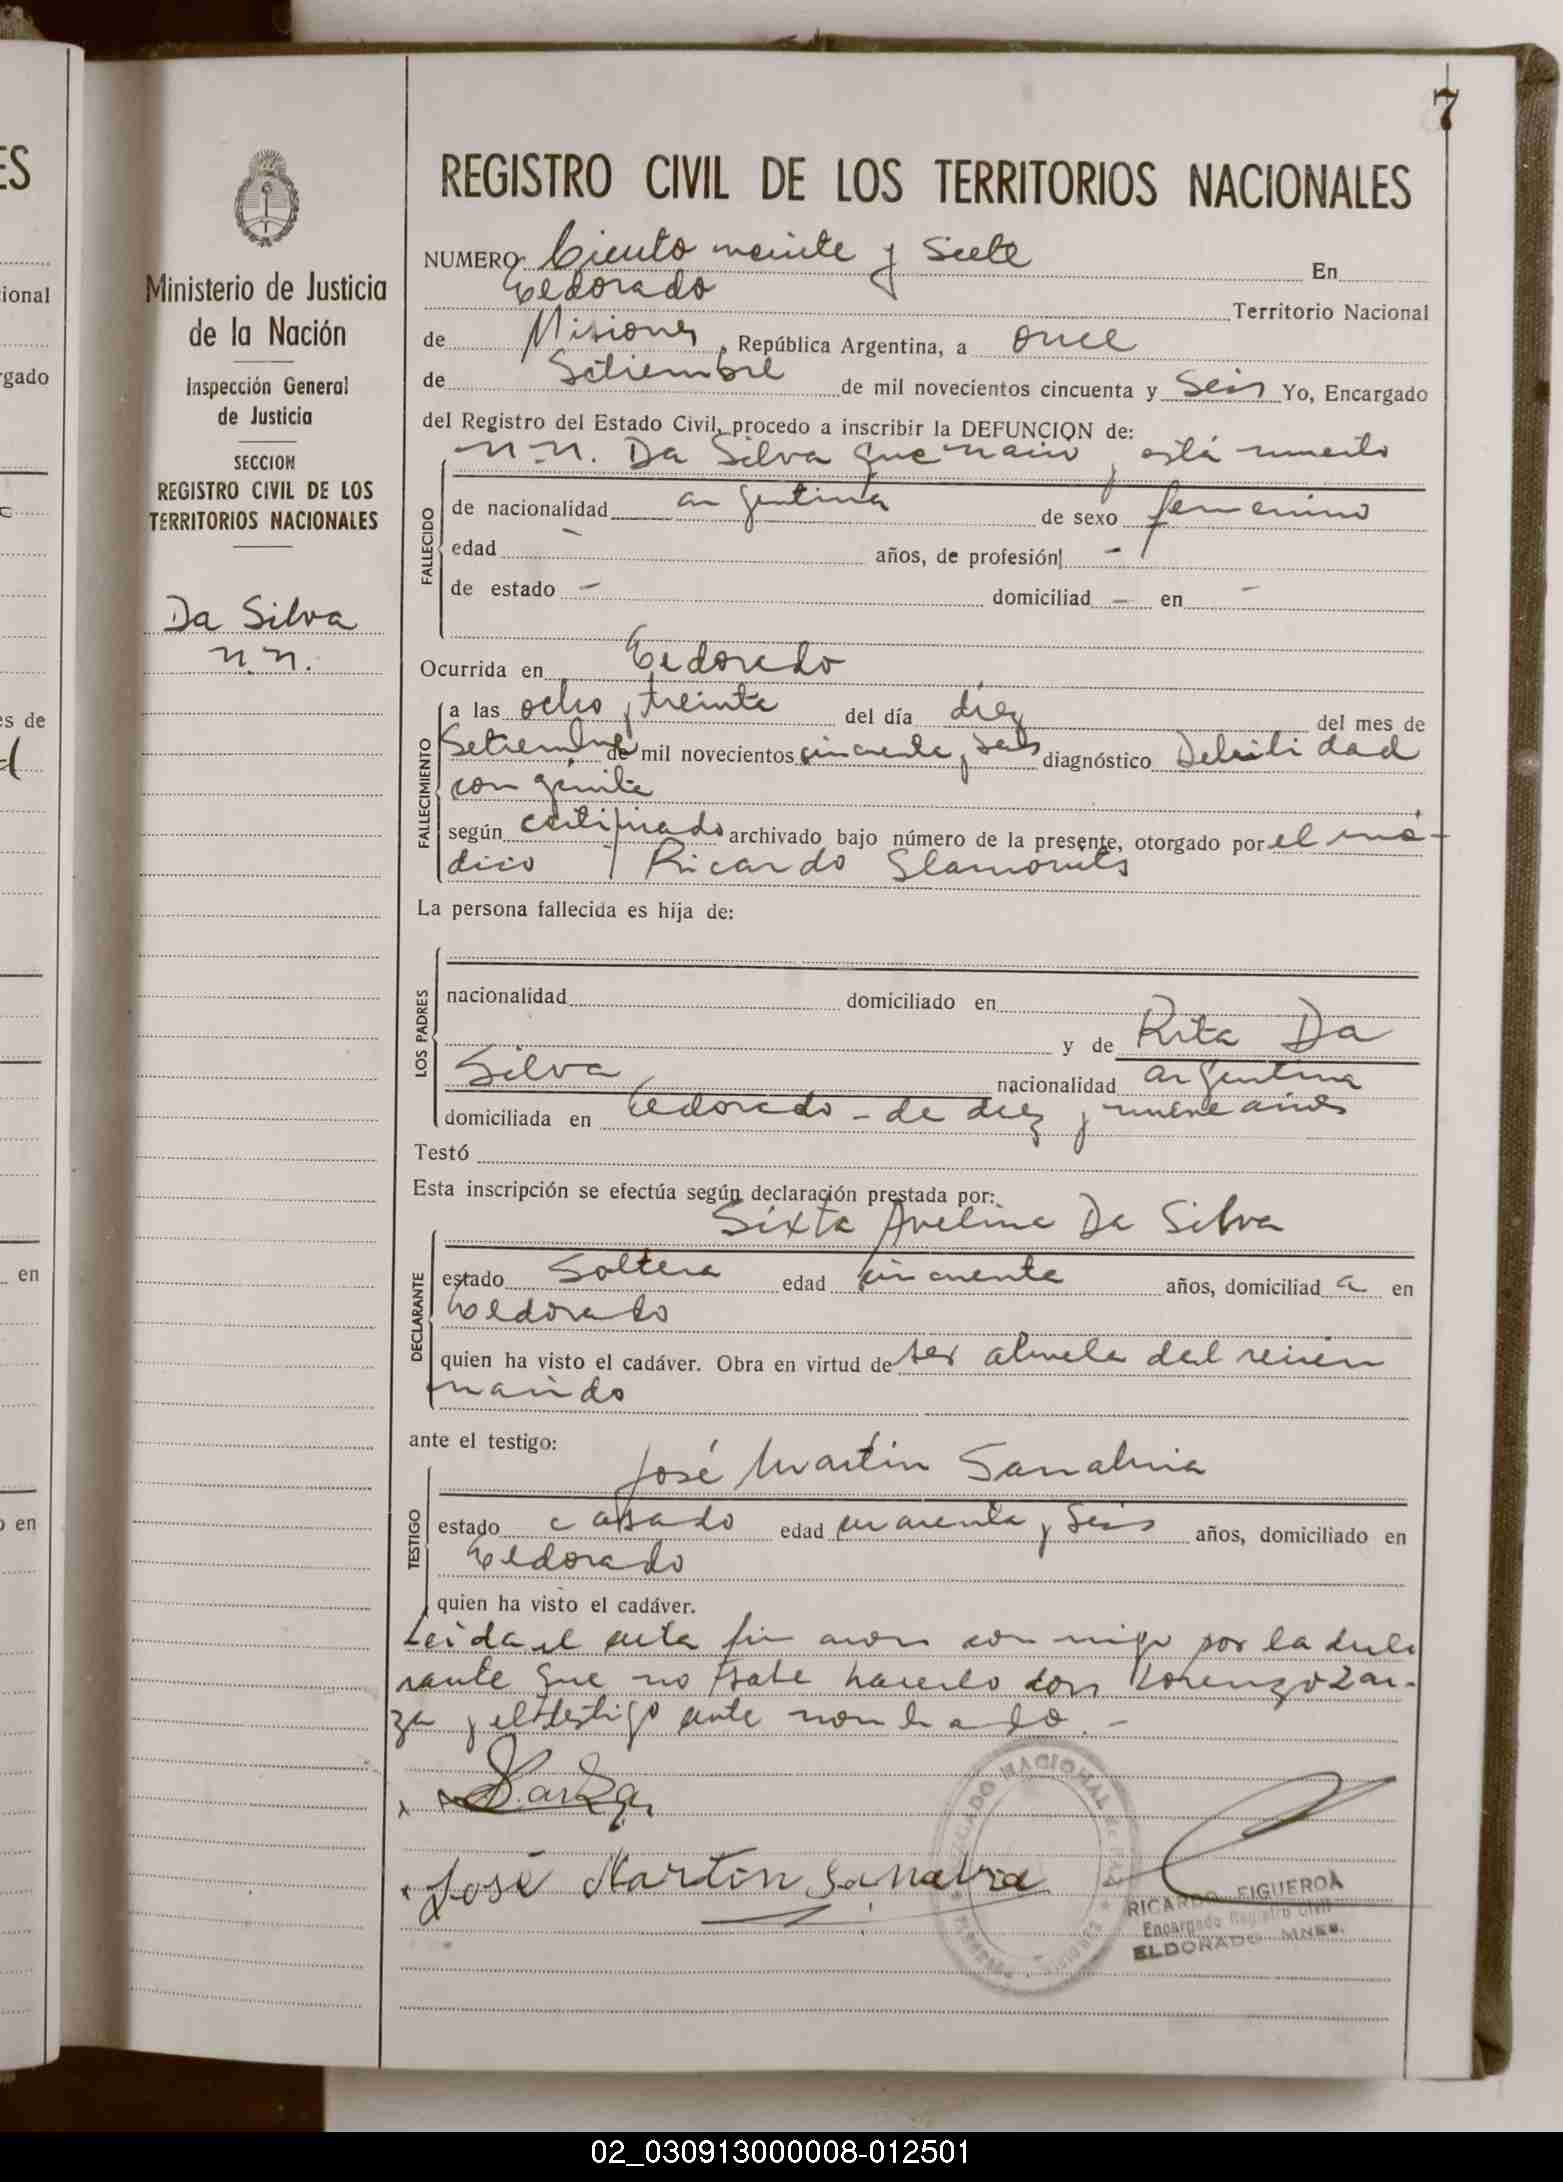 7
ES
ional
rgado
es de
en
o en
Ministerio de Justicia
de la Nación
Inspección General
de Justicia
SECCION
REGISTRO CIVIL DE LOS
TERRITORIOS NACIONALES
Da Silva
n.n.
REGISTRO CIVIL DE LOS TERRITORIOS NACIONALES
NUMERO Ciento veinte y siete En
Eldorado Territorio Nacional
de Misiones, República Argentina, a once
de Setiembre de mil novecientos cincuenta y seis Yo, Encargado
del Registro del Estado Civil, procedo a inscribir la DEFUNCION de:
n.n. Da Silva que nació y está muerto
FALLECIDO
de nacionalidad argentina de sexo femenino
edad - años, de profesión -
de estado - domiciliad - en -
Ocurrida en Eldorado
FALLECIMIENTO
a las ocho y treinta del día diez del mes de
Setiembre de mil novecientos cincuenta y seis diagnóstico Debilidad
congénita
según certificado archivado bajo número de la presente, otorgado por el mé-
dico Ricardo
La persona fallecida es hija de:
LOS PADRES
nacionalidad domiciliado en
y de Rita Da
Silva nacionalidad argentina
domiciliada en Eldorado - de diez y nueve años
Testó
Esta inscripción se efectúa según declaración prestada por:
Sixta Avelina Da Silva
DECLARANTE
estado Soltera edad cincuenta años, domiciliad a en
Eldorado
quien ha visto el cadáver. Obra en virtud de ser abuela del recién
nacido
ante el testigo:
José Martín Sanabria
TESTIGO
estado casado edad cuarenta y seis años, domiciliado en
Eldorado
quien ha visto el cadáver.
Leída el acta firmaron conmigo por la decla
rante que no sabe hacerlo don Lorenzo Zar-
za y el testigo ante nombrado.-
x Zarza
x José Martin Sanabria
RICARDO FIGUEROA
Encargado Registro Civil
ELDORADO MNES.
02_030913000008-012501